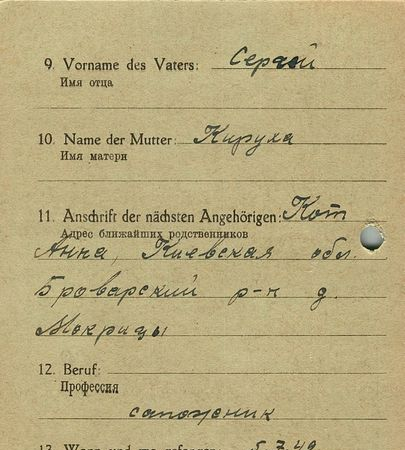 9. Vorname des Vaters: Сергей
Имя отца
10. Name der Mutter: Кируха
Имя матери
11. Anschrift der nächsten Angehörigen: Кот
Адрес ближайших родственников
Анна, Киевская обл.
Броварский р-н д.
Мокрицы
12. Beruf:
Профессия
сапожник